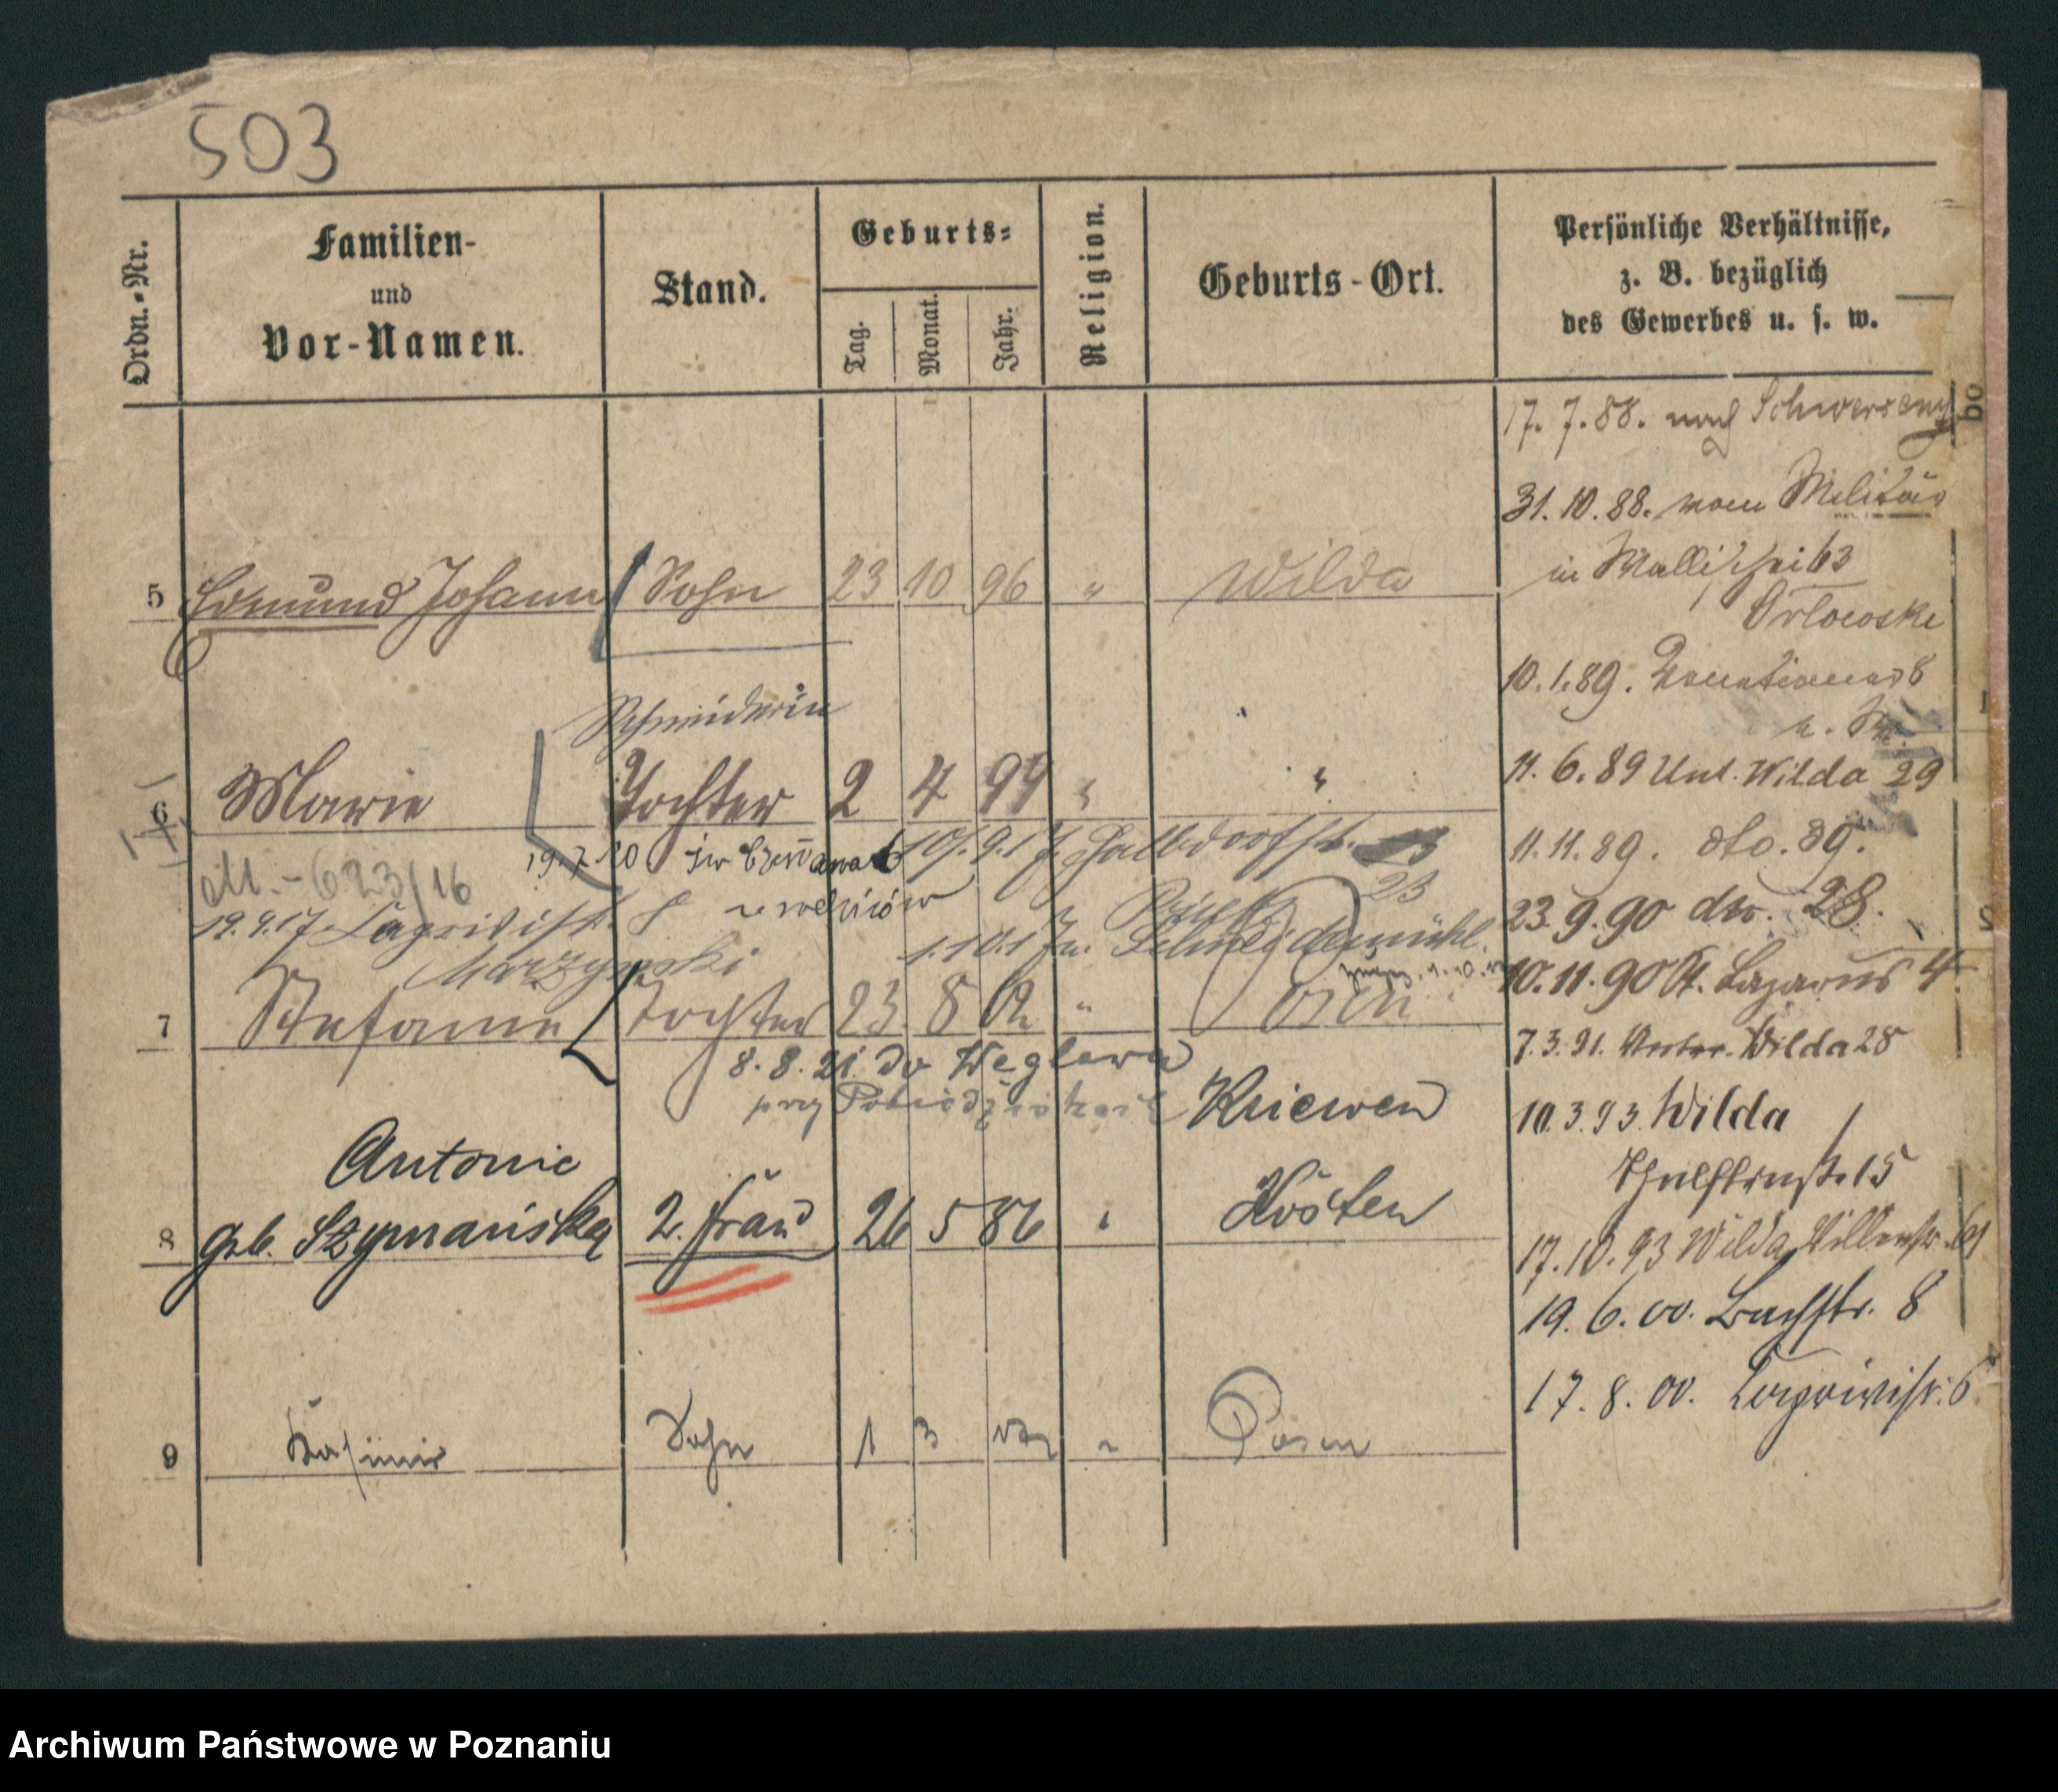 503
Ordn.-Nr.
Familien-
und
Vor-Namen.
Stand.
Geburts-
Tag.
Monat.
Jahr.
Religion.
Geburts-Ort.
Persönliche Verhältnisse,
z. B. bezüglich
des Gewerbes u. s. w.
17. 7. 88. nach Schwersenz
31. 10. 88. vom Militär
in Wallischei 63
Orlowske
5 Edmund Johann Sohn 23 10 96 " Wilda
10. 1. 89.
11. 6. 89 Unt. Wilda 29
Schneiderin
6 Marie Tochter 2 4 99 " "
11. 11. 89. dto. 39.
19.7.20
10/9.17 Halbdorfstr.
23
M. - 623/16
19.9.17
23. 9. 90 dto. 28.
1.10.17 n. Schneidemühl
Marzynski
10. 11. 90 St. Lazarus 4
7 Stefanie Tochter 23 8 02 " Posen
7. 3. 91. Unter. Wilda 28
8. 8. 21. do Węglewa
przy Pobiedziskach
Kriewen
10. 3. 93. Wilda
15
Antonie
8 geb. Szymańska 2. Frau 26 5 86 " Kosten
17. 10. 93 Wilda
19. 6. 00. Bachstr. 8
17. 8. 00. 6
9 Kasimir Sohn 1 3 " Posen
Archiwum Państwowe w Poznaniu